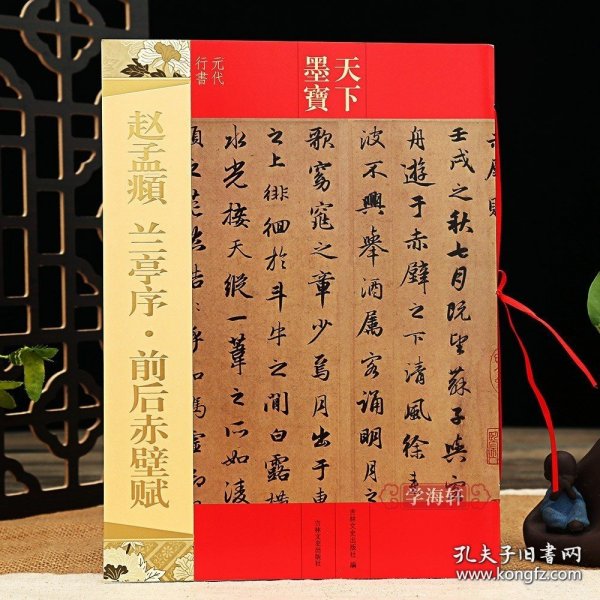 天下
墨寶
元代
行書
赵孟頫 兰亭序·前后赤壁赋
壬戌之秋七月既望蘇子與客
舟遊于赤壁之下清風徐
波不興舉酒屬客誦明月之
歌窈窕之章少焉月出于東
之上徘徊於斗牛之間白露橫
水光接天縱一葦之所如淩
頃之茫然浩浩乎如馮虚
吉林文史出版社 编
吉林文史出版社
学海轩
孔夫子旧书网
www.kongfz.com